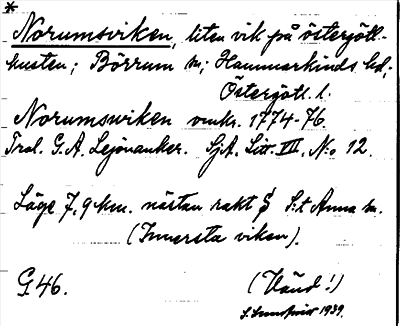 *
Norumsviken, liten vik på östergötl.-
kusten; Börrum sn; Hammarkinds hd;
Östergötl. l.
Norumswiken omkr. 1774-76
Trol. G. A. Lejonanker. SjA. Litt. VIII, N:o 12.
Läge 7,9 km. nästan rakt S S:t Anna sn.
(Innersta viken).
G. 46.
(Vänd!)
1939.